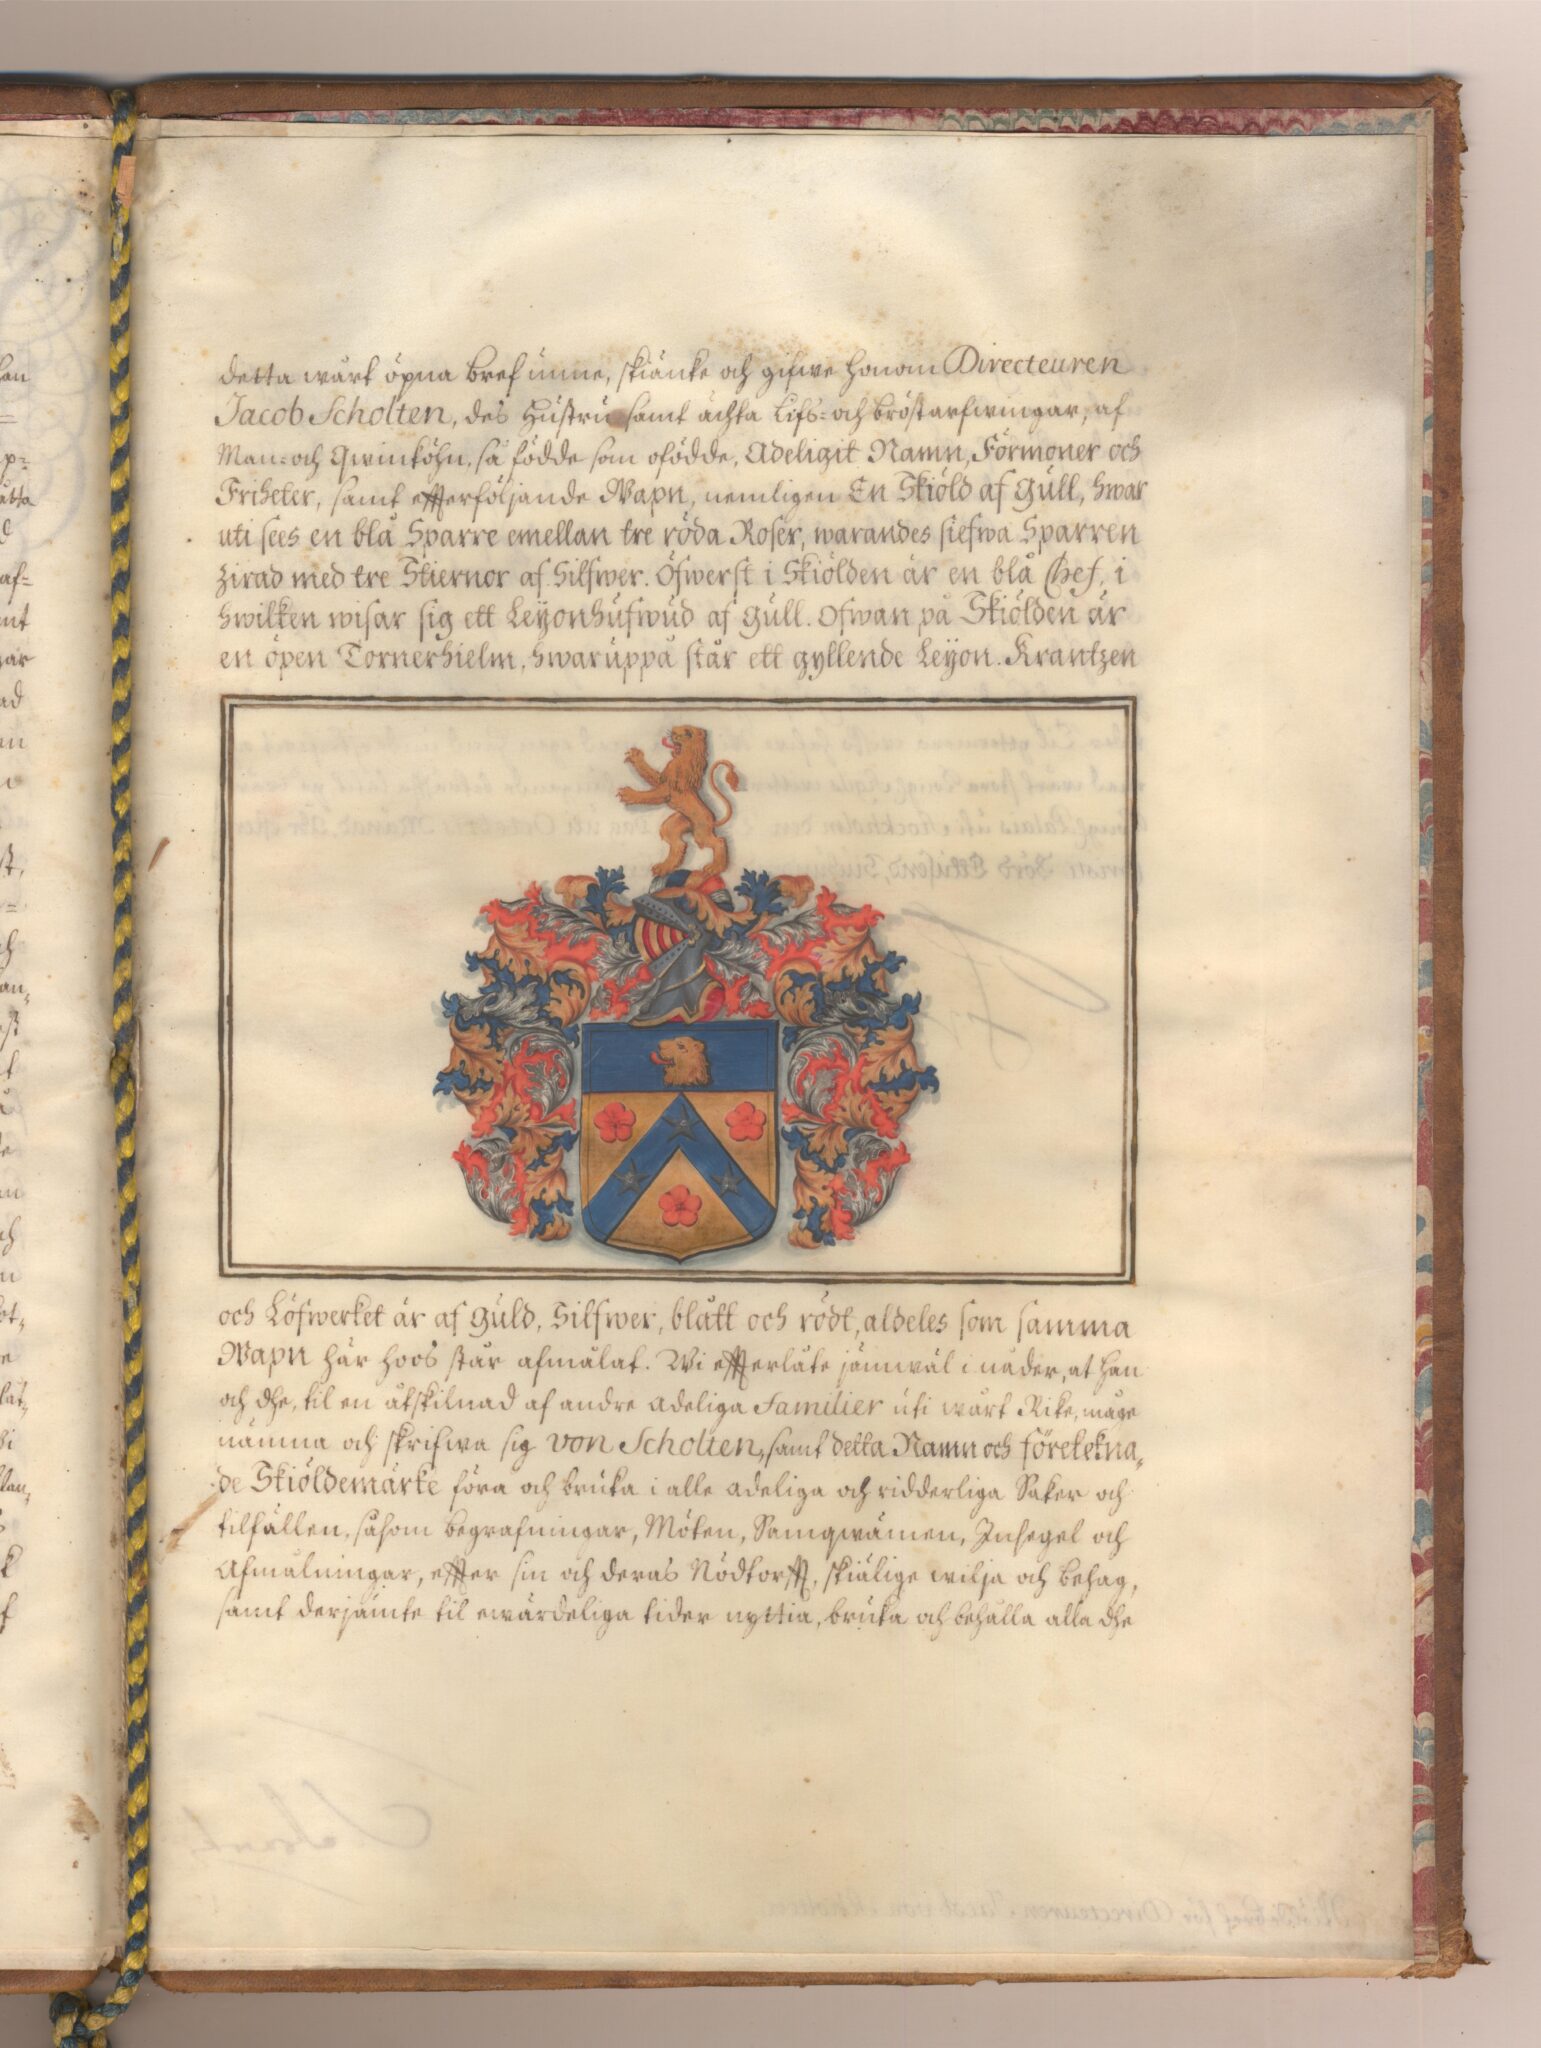 detta wårt öpna bref unne, skiänke och gifwe honom Directeuren
Jacob Scholten, des Hustru samt ächta Lifs- och bröstarfwingar, af
Man- och Qwinköhn, så födde som ofödde, Adeligit Namn, Förmoner och
Friheter, samt effterföljande Wapn, nemligen En Skiöld af Gull, hwar
uti sees en blå Sparre emellan tre röda Roser, warandes sielfwa Sparren
zirad med tre Stiernor af Silfwer. Öfwerst i Skiölden är en blå Chef, i
hwilken wisar sig ett Leyonhufwud af Gull. Ofwan på Skiölden är
en öpen Tornerhielm, hwaruppå står ett gyllende Leyon. Krantzen
och Löfwerket är af Guld, Silfwer, blått och rödt, aldeles som samma
Wapn här hoos står afmålat. Wi effterlåte jämwäl i nåder, at han
och dhe, til en åtskilnad af andre adeliga Familier uti wårt Rike, måge
nämna och skrifwa sig von Scholten, samt detta Namn och företekna,
de Skiöldemärke föra och bruka i alle adeliga och ridderliga Saker och
tilfällen, såsom begrafningar, Möten, Samqwämen, Insegel och
Afmålningar, effter sin och deras Nödtorfft, skiälige wilja och behag,
samt derjämte til ewärdeliga tider nyttia, bruka och behålla alla dhe